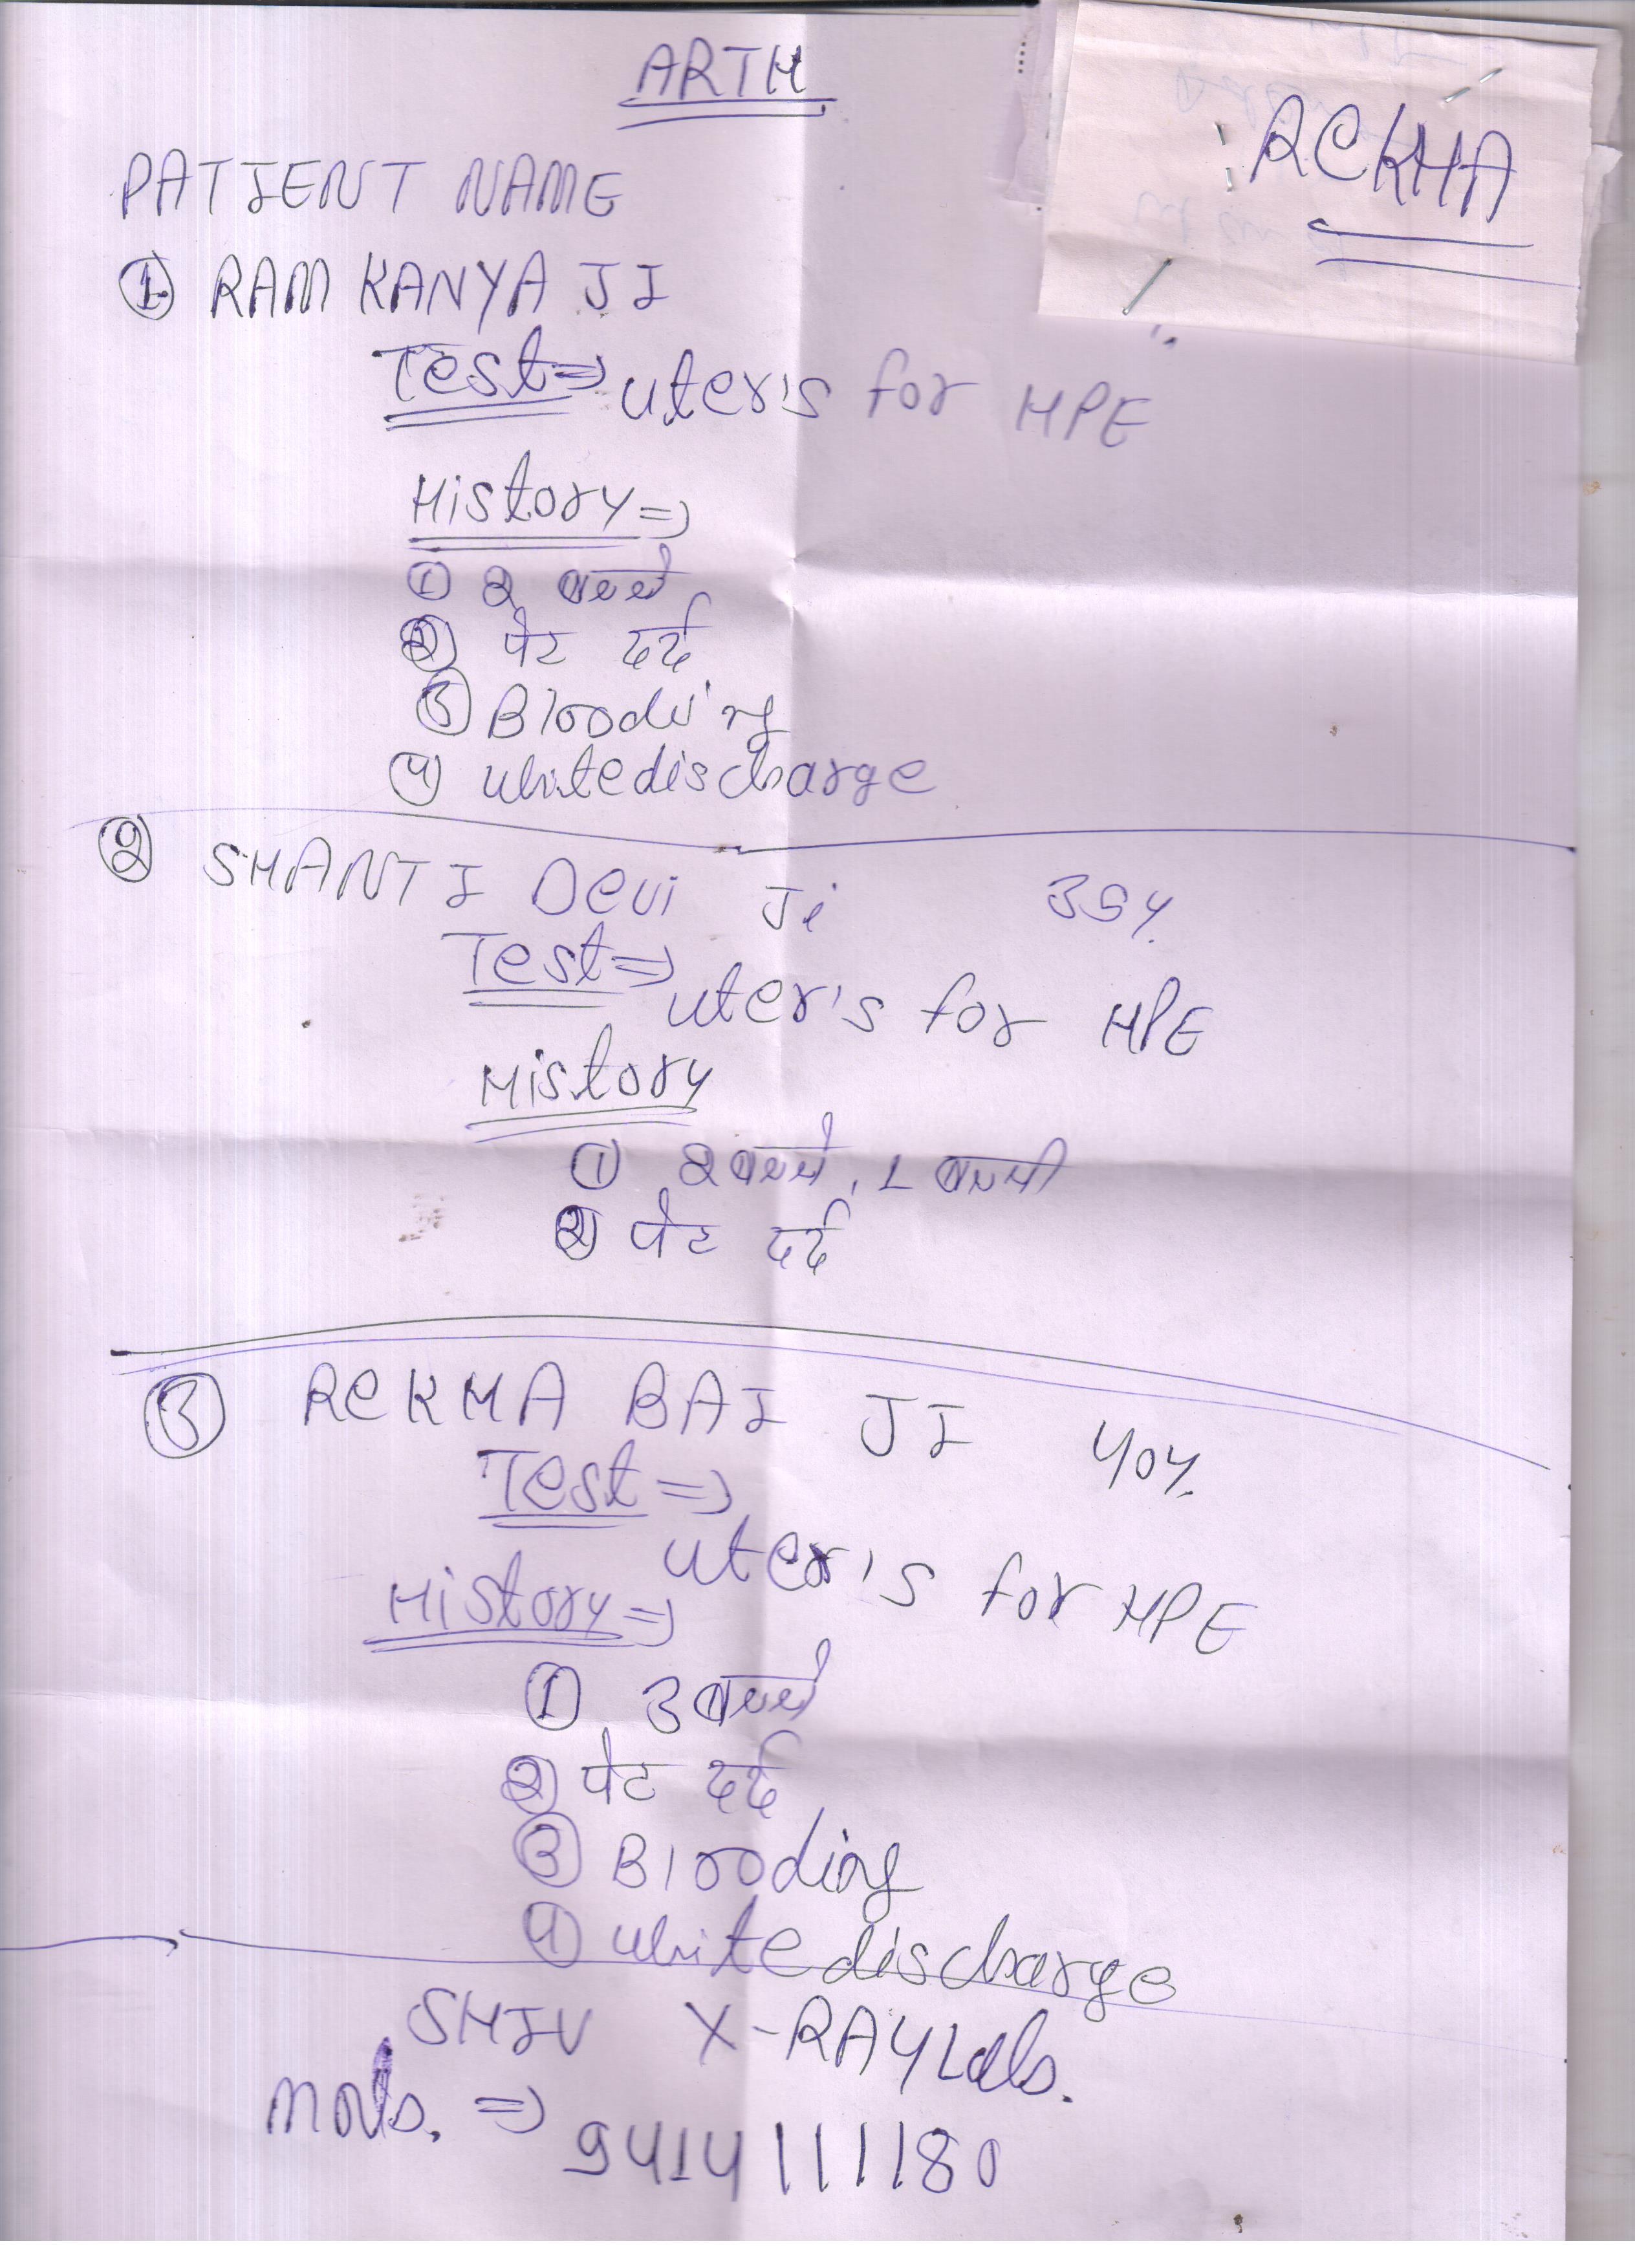 ARTH
RCKHA
PATIENT NAME
① RAM KANYA JI
Test⇒ uter's for HPE
History⇒
① २ बच्चे
② पेट दर्द
③ Blooding
④ whitedischarge
② SHANTI Devi Ji 35y.
Test⇒ uter's for HPE
History
① २ बच्चे, 1 बच्ची
② पेट दर्द
③ ReKHA BAI JI 40y.
Test⇒
uter's for HPE
History⇒
① 3 बच्चे
② पेट दर्द
③ Blooding
④ whitedischarge
SHIV X-RAY Lab.
Mob. ⇒ 9414111180